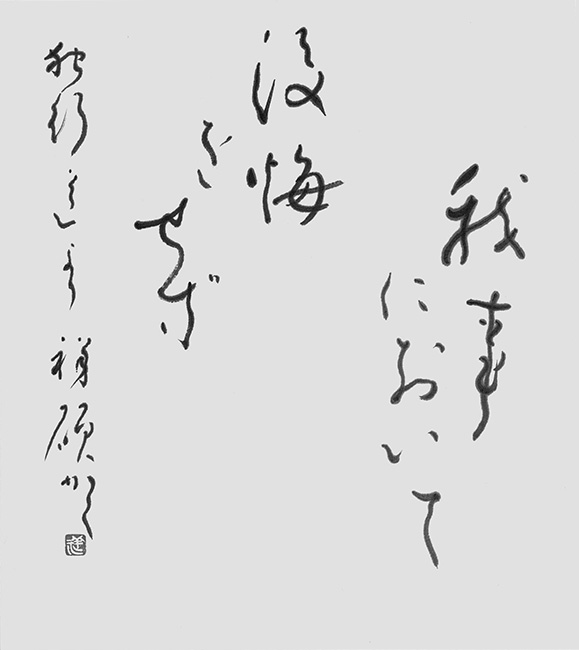 我事
において
後悔
を
せず
独行道より 祥碩かく